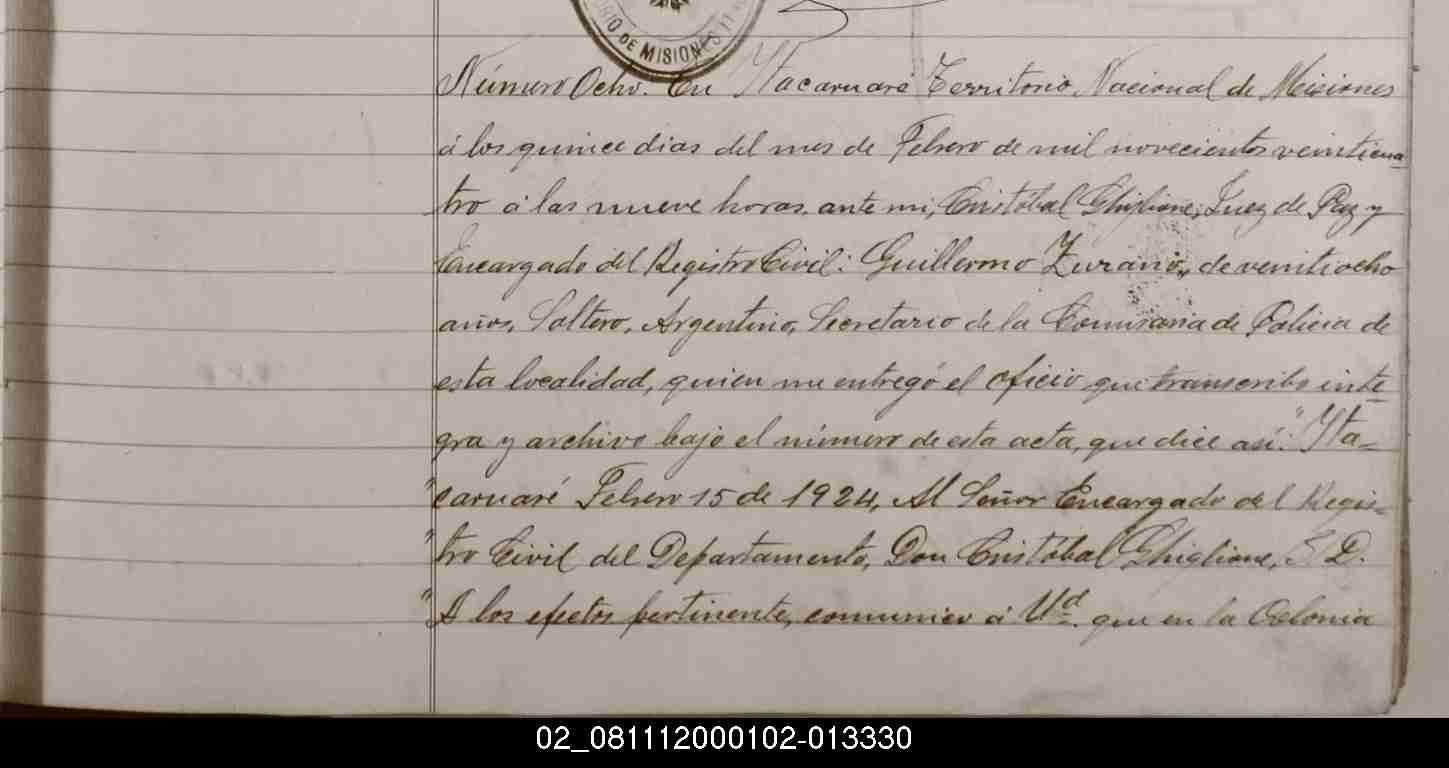 RIO DE MISIONES
Número Ocho. En Ytacaruaré Territorio Nacional de Misiones
á los quince dias del mes de Febrero de mil novecientos veinticua
tro á las nueve horas, ante mi, Cristóbal Ghiglione, Juez de Paz y
Encargado del Registro Civil: Guillermo Zurano, de veintiocho
años, Soltero, Argentino, Secretario de la Comisaria de Policia de
esta localidad, quien me entregó el oficio que transcribo inte
gra y archivo bajo el número de esta acta, que dice así: "Yta-
"caruaré Febrero 15 de 1924, Al Señor Encargado del Regis-
"tro Civil del Departamento, Don Cristóbal Ghiglione, S. D.
"A los efectos pertinente, comunico á Ud. que en la Colonia
02_081112000102-013330